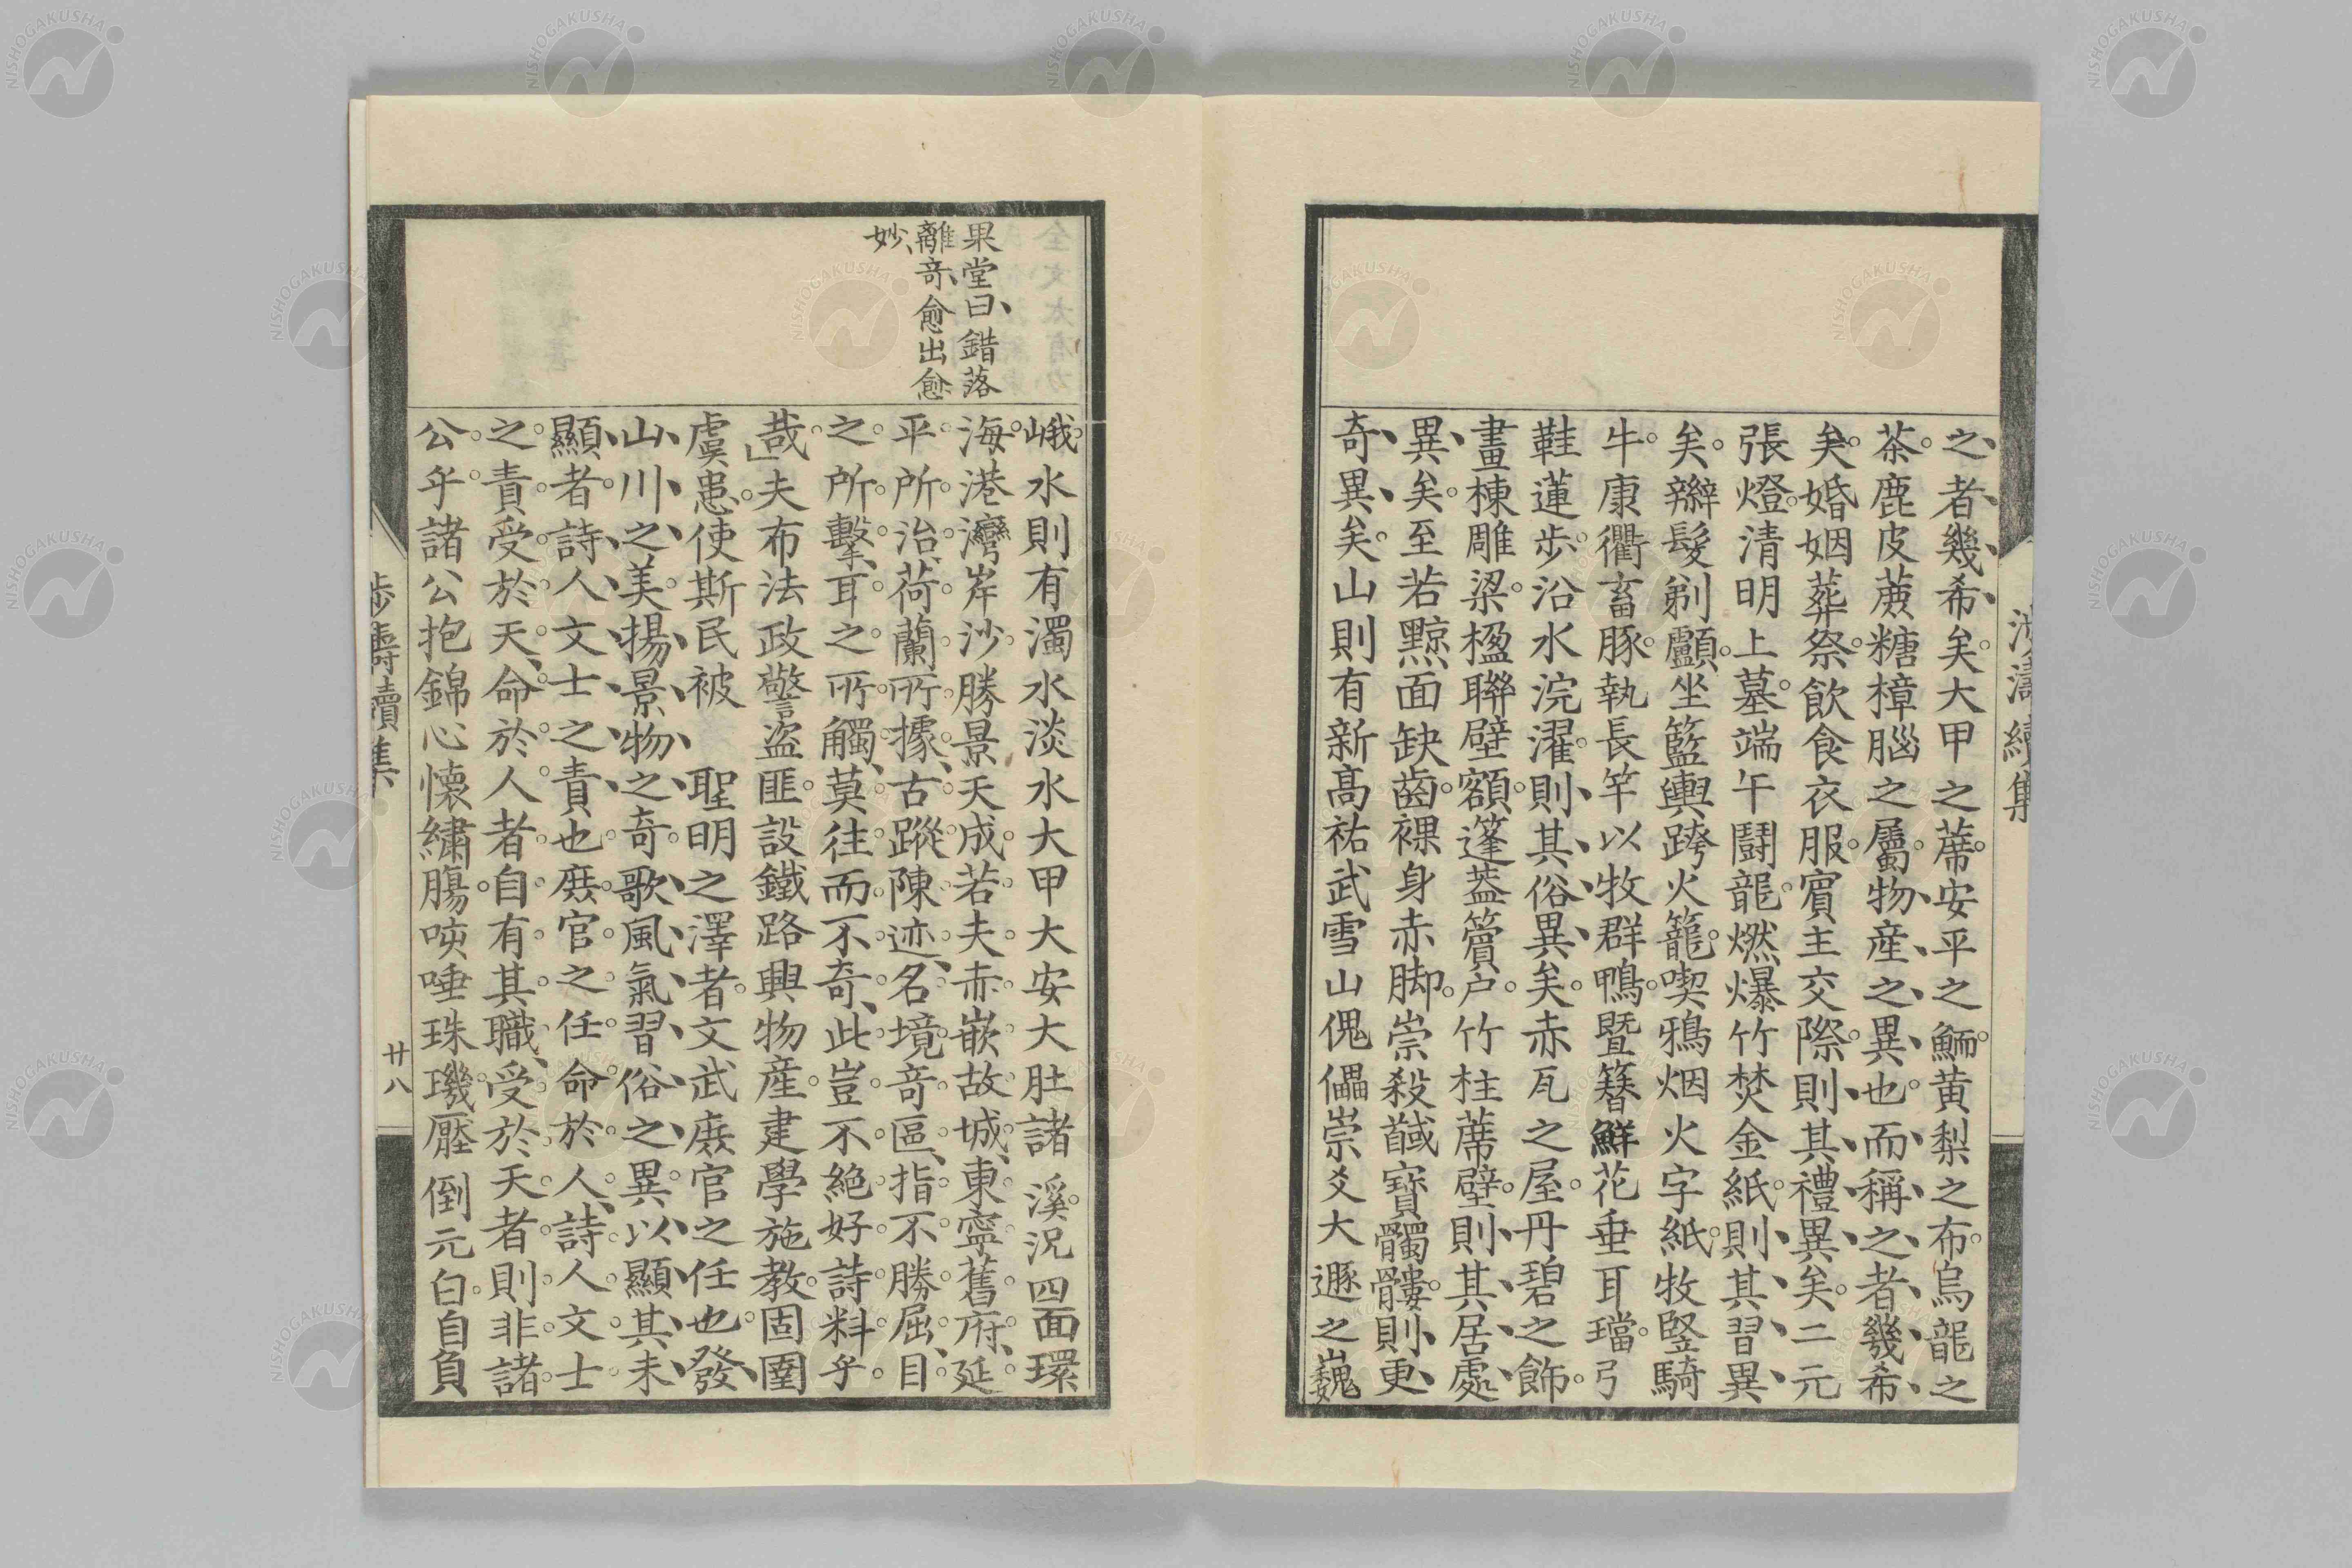 之者幾希矣大甲之蓆安平之鰤黄梨之布烏龍之
茶鹿皮蔗糖樟腦之屬物産之異也而稱之者幾希
矣婚姻葬祭飲食衣服賓主交際則其禮異矣二元
張燈清明上墓端午鬪龍燃爆竹焚金紙則其習異
矣辮髮剃顱坐籃輿跨火籠喫鴉烟火字紙牧竪騎
牛康衢畜豚執長竿以牧群鴨曁簪鮮花垂耳璫弓
鞋蓮歩沿水浣濯則其俗異矣赤瓦之屋丹碧之飾
畫棟雕梁楹聯壁額篷葢簹户竹柱蓆壁則其居處
異矣至若黥面缺齒裸身赤脚崇殺馘寶髑髏則更
奇異矣山則有新髙祐武雪山傀儡崇爻大遯之巍
果堂曰錯落
離竒愈出愈
妙
峨水則有濁水淡水大甲大安大肚諸溪況四面環
海港灣岸沙勝景天成若夫赤嵌故城東寧舊府延
平所治荷蘭所據古蹤陳迹名境竒區指不勝屈目
之所擊耳之所觸莫往而不奇此豈不絶好詩料乎
哉夫布法政警盜匪設鐵路興物産建學施教固圉
虞患使斯民被 聖明之澤者文武庻官之任也發
山川之美揚景物之奇歌風氣習俗之異以顯其未
顯者詩人文士之責也庻官之任命於人詩人文士
之責受於天命於人者自有其職受於天者則非諸
公乎諸公抱錦心懐繡膓咳唾珠璣壓倒元白自負
濤續集
廿八